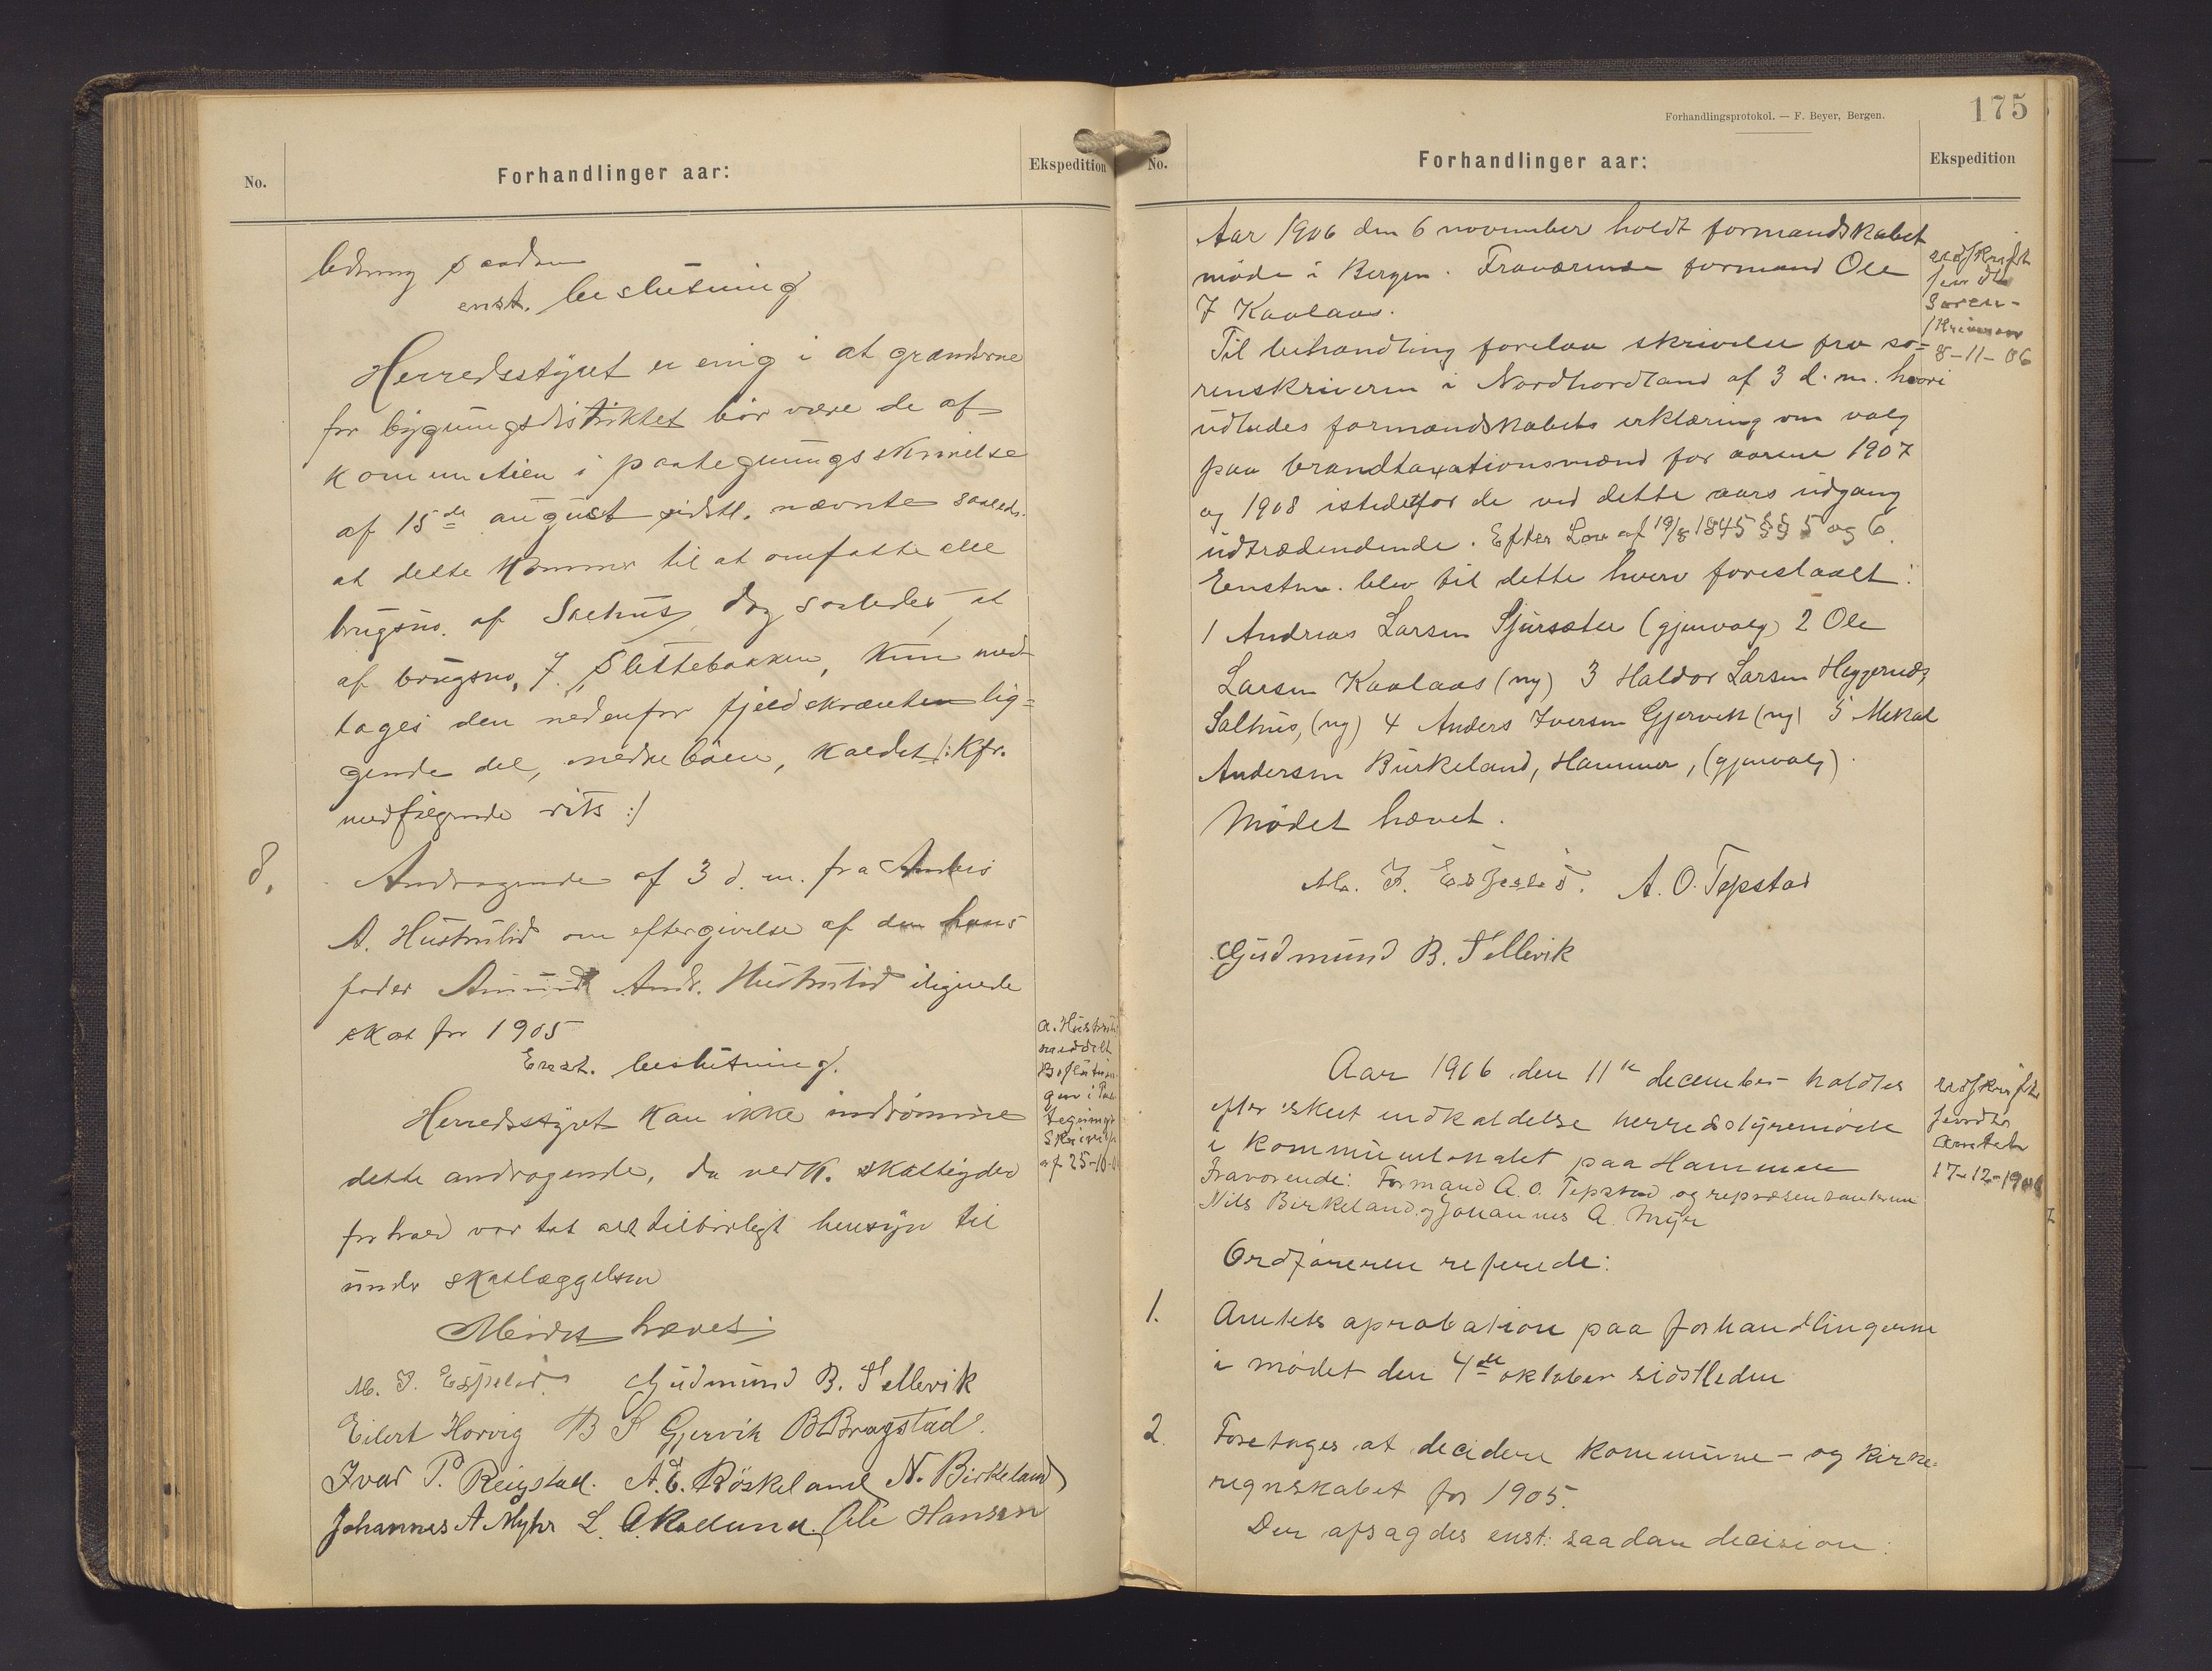 No.
Forhandlinger aar:
Ekspedition
ledning saadan
enst. beslutning
Herredsstyret er enig i at grændserne
for bygningsdistriktet bør være de af
i paategningsskrivelse
af 15de august sidstl. nævnte saaleds.
at dette kommer til at omfatte alle
brugsno. af Salhus, dog saaledes, at
af brugsno. 7, Slettebakken, kun med-
tages den nedenfor fjeldskrænten lig=
gende del, nedreböen, kaldet /: Kfr.
medfølgende rits :/
8. Andragende af 3 d. m. fra
A. Hustrulid om eftergivelse af den hans
fader Amund And. Hustrulid ilignede
skat for 1905
Enst. beslutning.
Herredsstyret kan ikke indrømme
dette andragende, da vedk. skatteyder
forhold var tat alt tilbørligt hensyn til
under skatlæggelsen
Mødet hævet.
M. J. Espelid. Gudmund B. Tellevik
Eilert Horvig B S Gjervik B Bragstad.
Ivar P. Reigstad. A. E. Röskeland N. Birkeland
Johannes A Myhr L. A. Ole Hansen
A. Hustrulid
meddelt
Beslutnin-
gen i Paa-
tegnings
Skrivelse
af 25-10-06
Forhandlingsprotokol. — F. Beyer, Bergen.
175
No.
Forhandlinger aar:
Ekspedition
Aar 1906 den 6 november holdt formandskabet
møde i Bergen. Fraværende formand Ole
J Kaalaas.
Til behandling forelaa skrivelse fra so=
renskriveren i Nordhordland af 3 d. m. hvori
udbedes formandskabets erklæring om valg
paa brandtaxationsmænd for aarene 1907
og 1908 istedetfor de ved dette aars udgang
udtrædendende. Efter Lov af 19/8 1845 §§ 5 og 6.
Enstm. blev til dette hverv foreslaalt:
1 Andreas Larsen Sjursæter (gjenvalg) 2 Ole
Larsen Kaalaas (ny) 3 Haldor Larsen Heggernæs,
Salhus, (ny) 4 Anders Iversen Gjervik (ny) 5 Mikal
Andersen Birkeland, Hammer, (gjenvalg).
Mødet hævet.
M. J. Espelid. A. O. Tepstad
Gudmund B. Tellevik
udskrift
sendt
Soren-
skriveren
8-11-06
Aar 1906 den 11te december holdtes
efter skeet indkaldelse herredsstyremøde
i kommunelokalet paa Hammer
Fraværende: Formand A. O. Tepstad og repræsentanterne
Nils Birkeland og Johannes A. Myr
Ordføreren referede:
1. Amtets aprobation paa forhandlingerne
i mødet den 4de oktober sidstleden
2. Foretages at decidere kommune- og kirke-
regnskabet for 1905.
Der afsagdes enst. saadan decision:
udskrift
sendt
amtet
17-12-1906